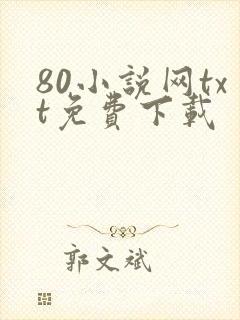 80小説网tx
t免費下載
郭文斌